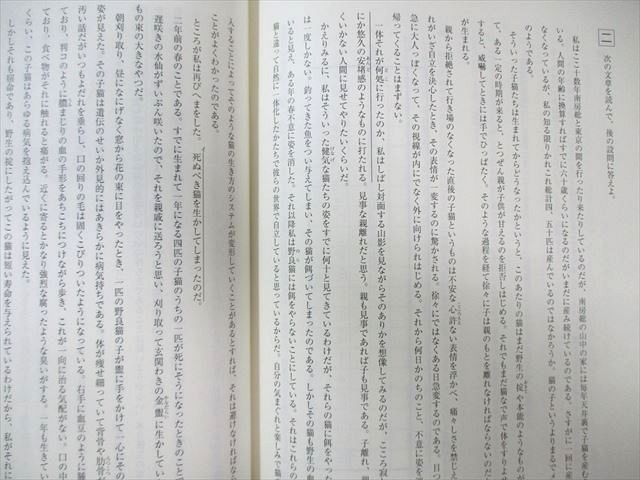 二 次の文章を読んで、後の設問に答えよ。
私はここ十数年南房総と東京の間を行ったり来たりしているのだが、南房総の山中の家には毎年天井裏で子猫を産む
いる。人間の年齢に換算すればすでに六十歳くらいになるのだがいまだに産み続けているのである。さすがに一回に産
くなっているが、私の知る限りかれこれ総計四、五十匹は産んでいるのではなかろうか。猫の子というよりまるで
のようである。
そういった子猫たちは生まれてからどうなったかというと、このあたりの猫はまだ野生の掟や本能のようなものが
て、ある一定の時期が来ると、とつぜん親が子供が甘えるのを拒否しはじめる。それでもまだ猫なで声で体をすりよ
すると、威嚇してときには手でひっぱたく。そのような過程を経て徐々に子は親のもとを離れなければならないのだ
が生まれる。
親から拒絶されて行き場のなくなった直後の子猫というものは不安な心許ない表情を浮かべ、痛々しさを禁じえ
れがいざ自立を決心したとき、その表情が一変するのに驚かされる。徐々にではなくある日急変するのである。目つ
急に大人っぽくなって、その視線が内にでなく外に向けられはじめる。それから何日かのちのこと、不意に姿を
帰ってくることはまずない。
一体それが何処に行ったのか、私はしばし対面する山影を見ながらそのありかを想像してみるのだが、こころ寂
かに悠久の安堵感のようなものに打たれる。見事な親離れだと思う。親も見事であれば子も見事である。子離れ、親
くいかない人間に見せてやりたいくらいだ。
かえりみるに、私はそういった健気な猫たちの姿をすでに何十と見てきているわけだが、それらの猫に餌をやった
は一度しかない。釣ってきた魚をつい与えてしまい、その猫が餌づいてしまったのである。しかしその猫も野生の血
いると見え、ある年の春不意に姿を消した。それ以降私は野良猫には餌をやらないことにしている。それはこれらの
猫と違って自然に一体化したかたちで彼らの世界で自立していると思っているからだ。自分の気まぐれと楽しみで猫
入することによってそのような猫の生き方のシステムが変形していくことがあるとすれば、それは避けなければな
ことがよくわかったのである。
ところが私は再びヘまをした。
死ぬべき猫を生かしてしまったのだ。
二年前の春のことである。すでに生まれて一年になる四匹の子猫のうちの一匹が死にそうになったときのこと
遅咲きの水仙がずいぶん咲いたので、それを親戚に送ろうと思い、刈り取って玄関わきの金盥に生かしてい
もの束の大きなやつだ。
朝刈り取り、昼になにげなく窓から花の束に目をやったとき、一匹の野良猫の子が盥に手をかけて一心にその
姿が見えた。その子猫は遺伝のせいか外見的にはあきらかに病気持ちである。体が痩せ細っていて背骨や肋骨
汚い話だがいつもよだれを垂らし、口の回りの毛は固くこびりついたようになっている。右手に血豆のように腫
ており、判コのように膿まじりの血の手形をあちこちにつけながら歩き、これが一向に治る気配がない。口の中
ており、食べ物がそれに触れると痛がる。近くに寄るとかなり強烈な腐ったような臭いがする。一年も生きてい
くらい、この子猫はあらゆる病気を抱え込んでいるように見えた。
しかしそれも宿命であり、野生の掟にしたがってこの猫は短い寿命を与えられているわけだから、私がそれに